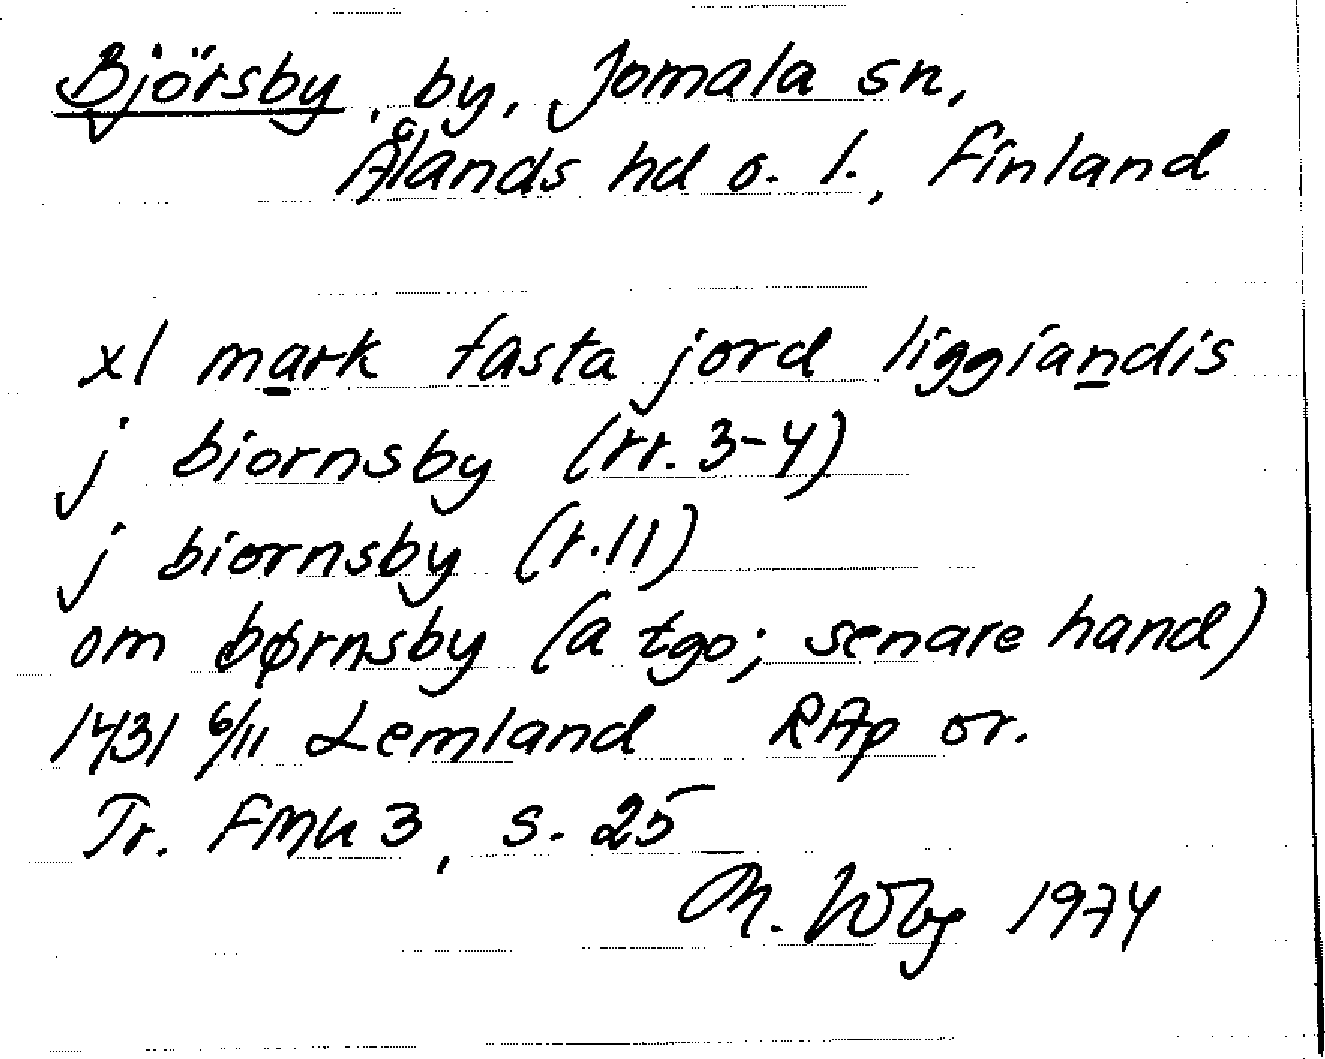 Björsby, by, Jomala sn,
Ålands hd o. l., Finland
xl mark fasta jord liggiandis
j biornsby (rr. 3-4)
j biornsby (r. 11)
om børnsby (a tgo; senare hand)
1431 6/11 Lemland RAp or.
Tr. FMU 3, s. 25
M. Wbg 1974